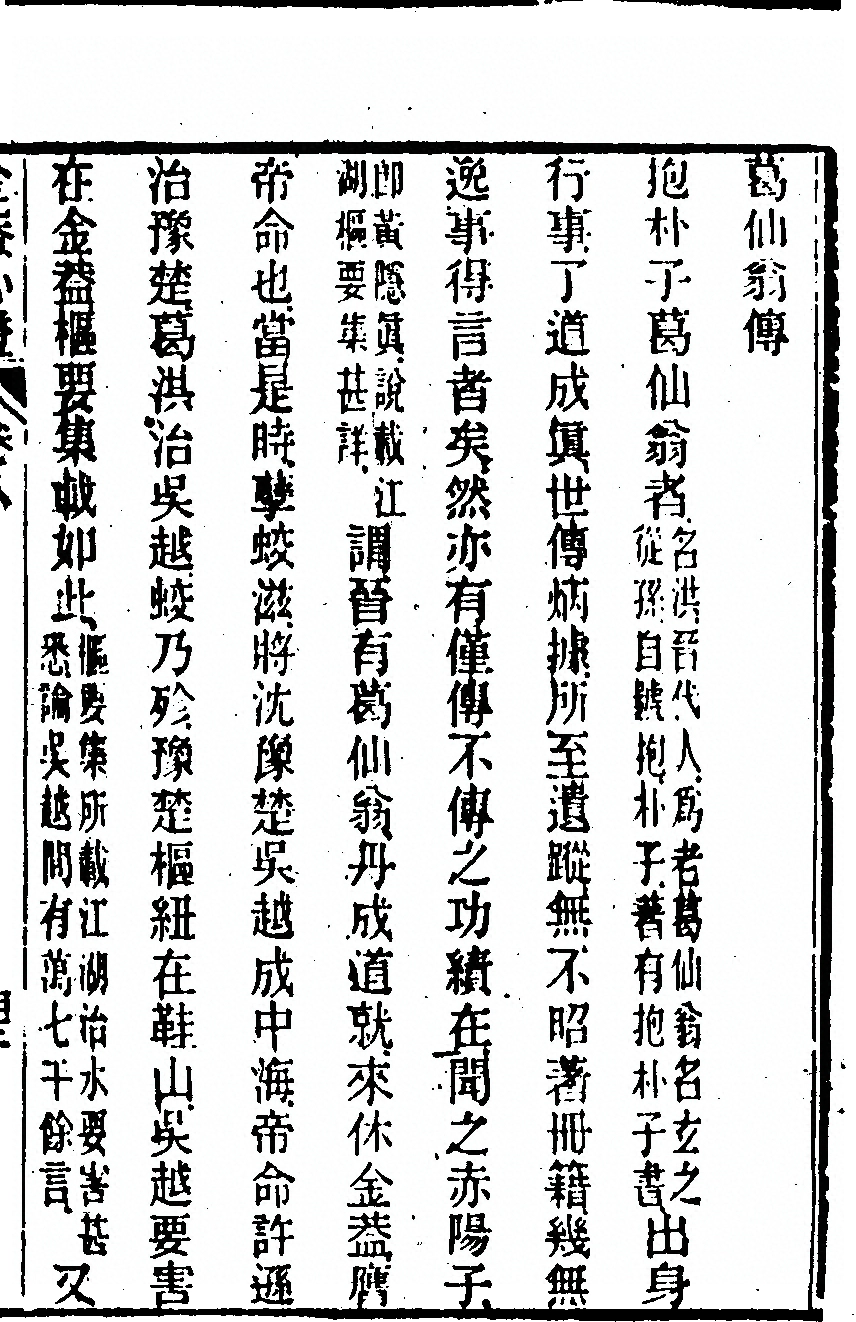 葛仙翁傳
抱朴子葛仙翁者名洪晉代人爲老葛仙翁名玄之從孫自號抱朴子著有抱朴子書出身
行事了道成眞世傳炳據所至遺蹤無不昭著冊籍幾無
逸事得言者矣然亦有僅傳不傳之功績在聞之赤陽子
卽黃隱眞說載江湖樞要集甚詳謂晉有葛仙翁丹成道就來休金葢膺
帝命也當是時孽蛟滋將沈豫楚吳越成中海帝命許遜
治豫楚葛洪治吳越蛟乃殄豫楚樞紐在鞋山吳越要害
在金葢樞要集載如此樞要集所載江湖治水要害甚悉論吳越間有萬七千餘言又